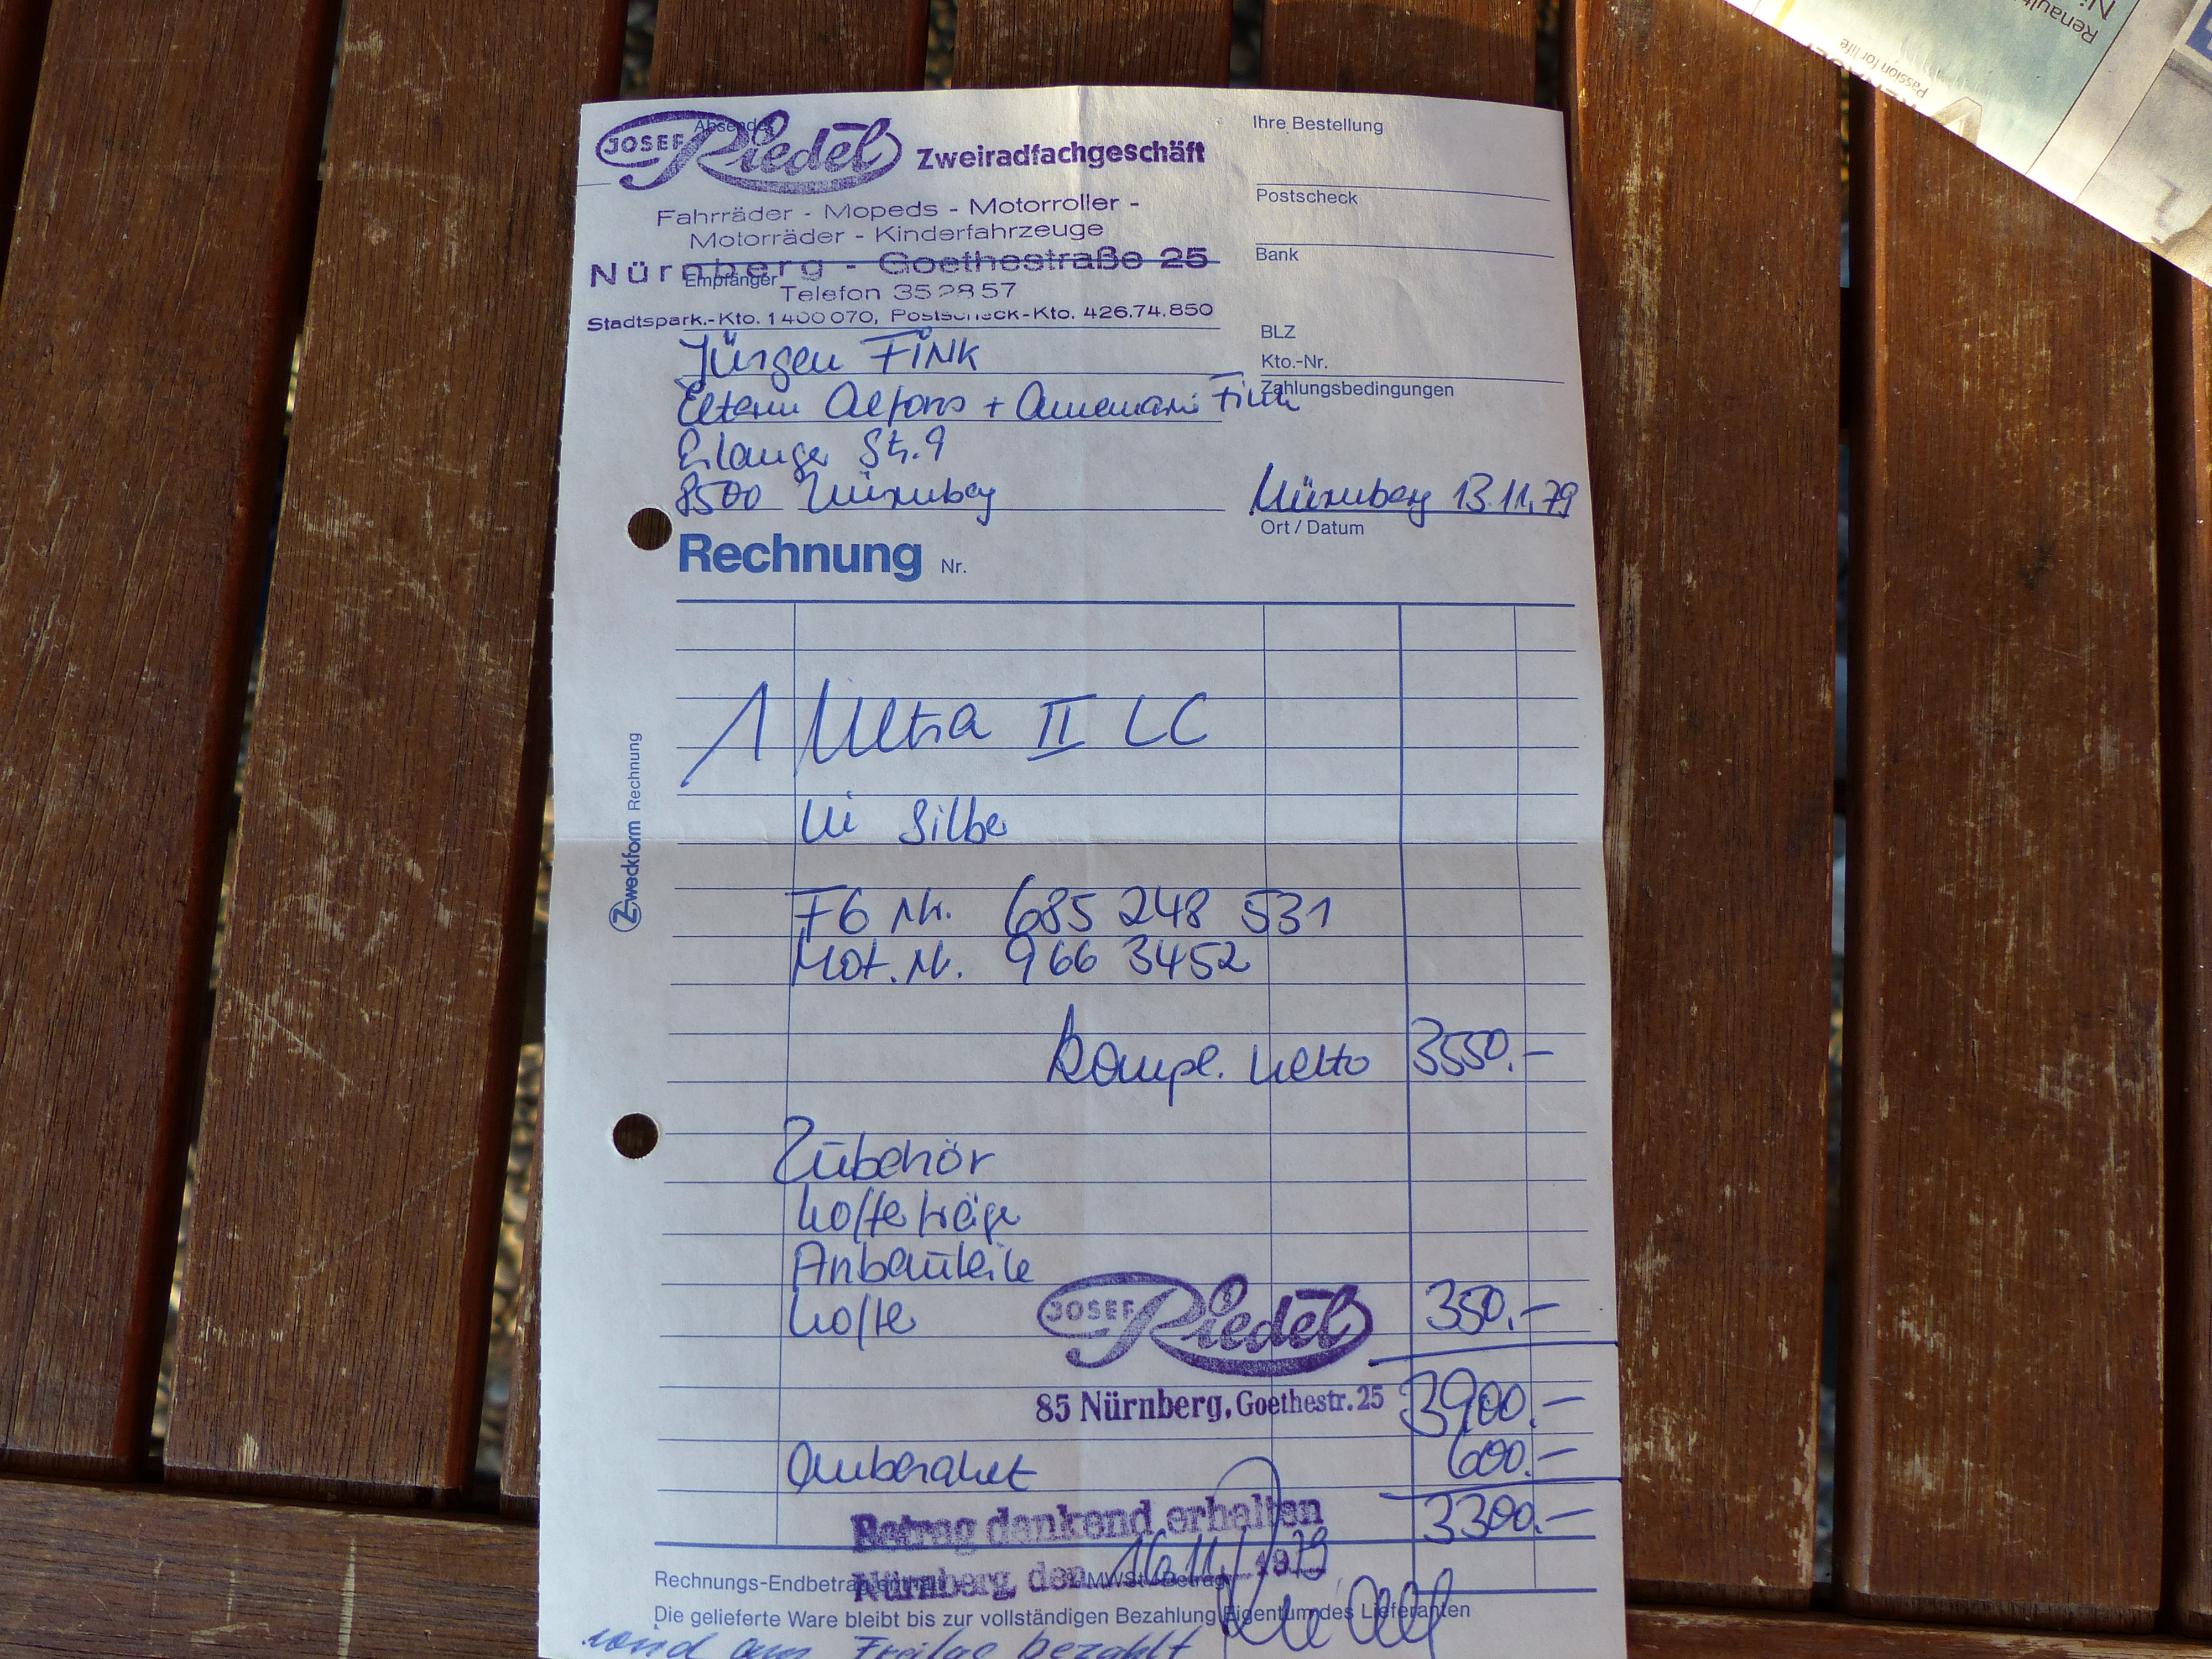 Absender
JOSEF Riedel Zweiradfachgeschäft
Ihre Bestellung
Fahrräder - Mopeds - Motorroller -
Motorräder - Kinderfahrzeuge
Postscheck
Nürnberg - Goethestraße 25
Bank
Empfänger
Telefon 352857
Stadtspark.-Kto. 1400070, Postscheck-Kto. 426.74.850
BLZ
Jürgen FINK
Kto.-Nr.
Zahlungsbedingungen
Eltern Alfons + Annemarie Fink
Erlanger Str. 9
8500 Nürnberg
Nürnberg 13.11.79
Ort / Datum
Rechnung Nr.
1 Ultra II LC
in Silber
FG Nr. 685 248 531
Mot. Nr. 966 3452
kompl. netto 3550.-
Zubehör
Kofferträger
Anbauteile
Koffer 350.-
JOSEF Riedel
85 Nürnberg, Goethestr. 25 3900.-
Anbezahlt 600.-
3300.-
Betrag dankend erhalten
Nürnberg, den 16.11. 1979
Rechnungs-Endbetrag MWSt-Betrag
Die gelieferte Ware bleibt bis zur vollständigen Bezahlung Eigentum des Lieferanten
wird am Freitag bezahlt
Zweckform Rechnung
Renault
Ni
Passion for life